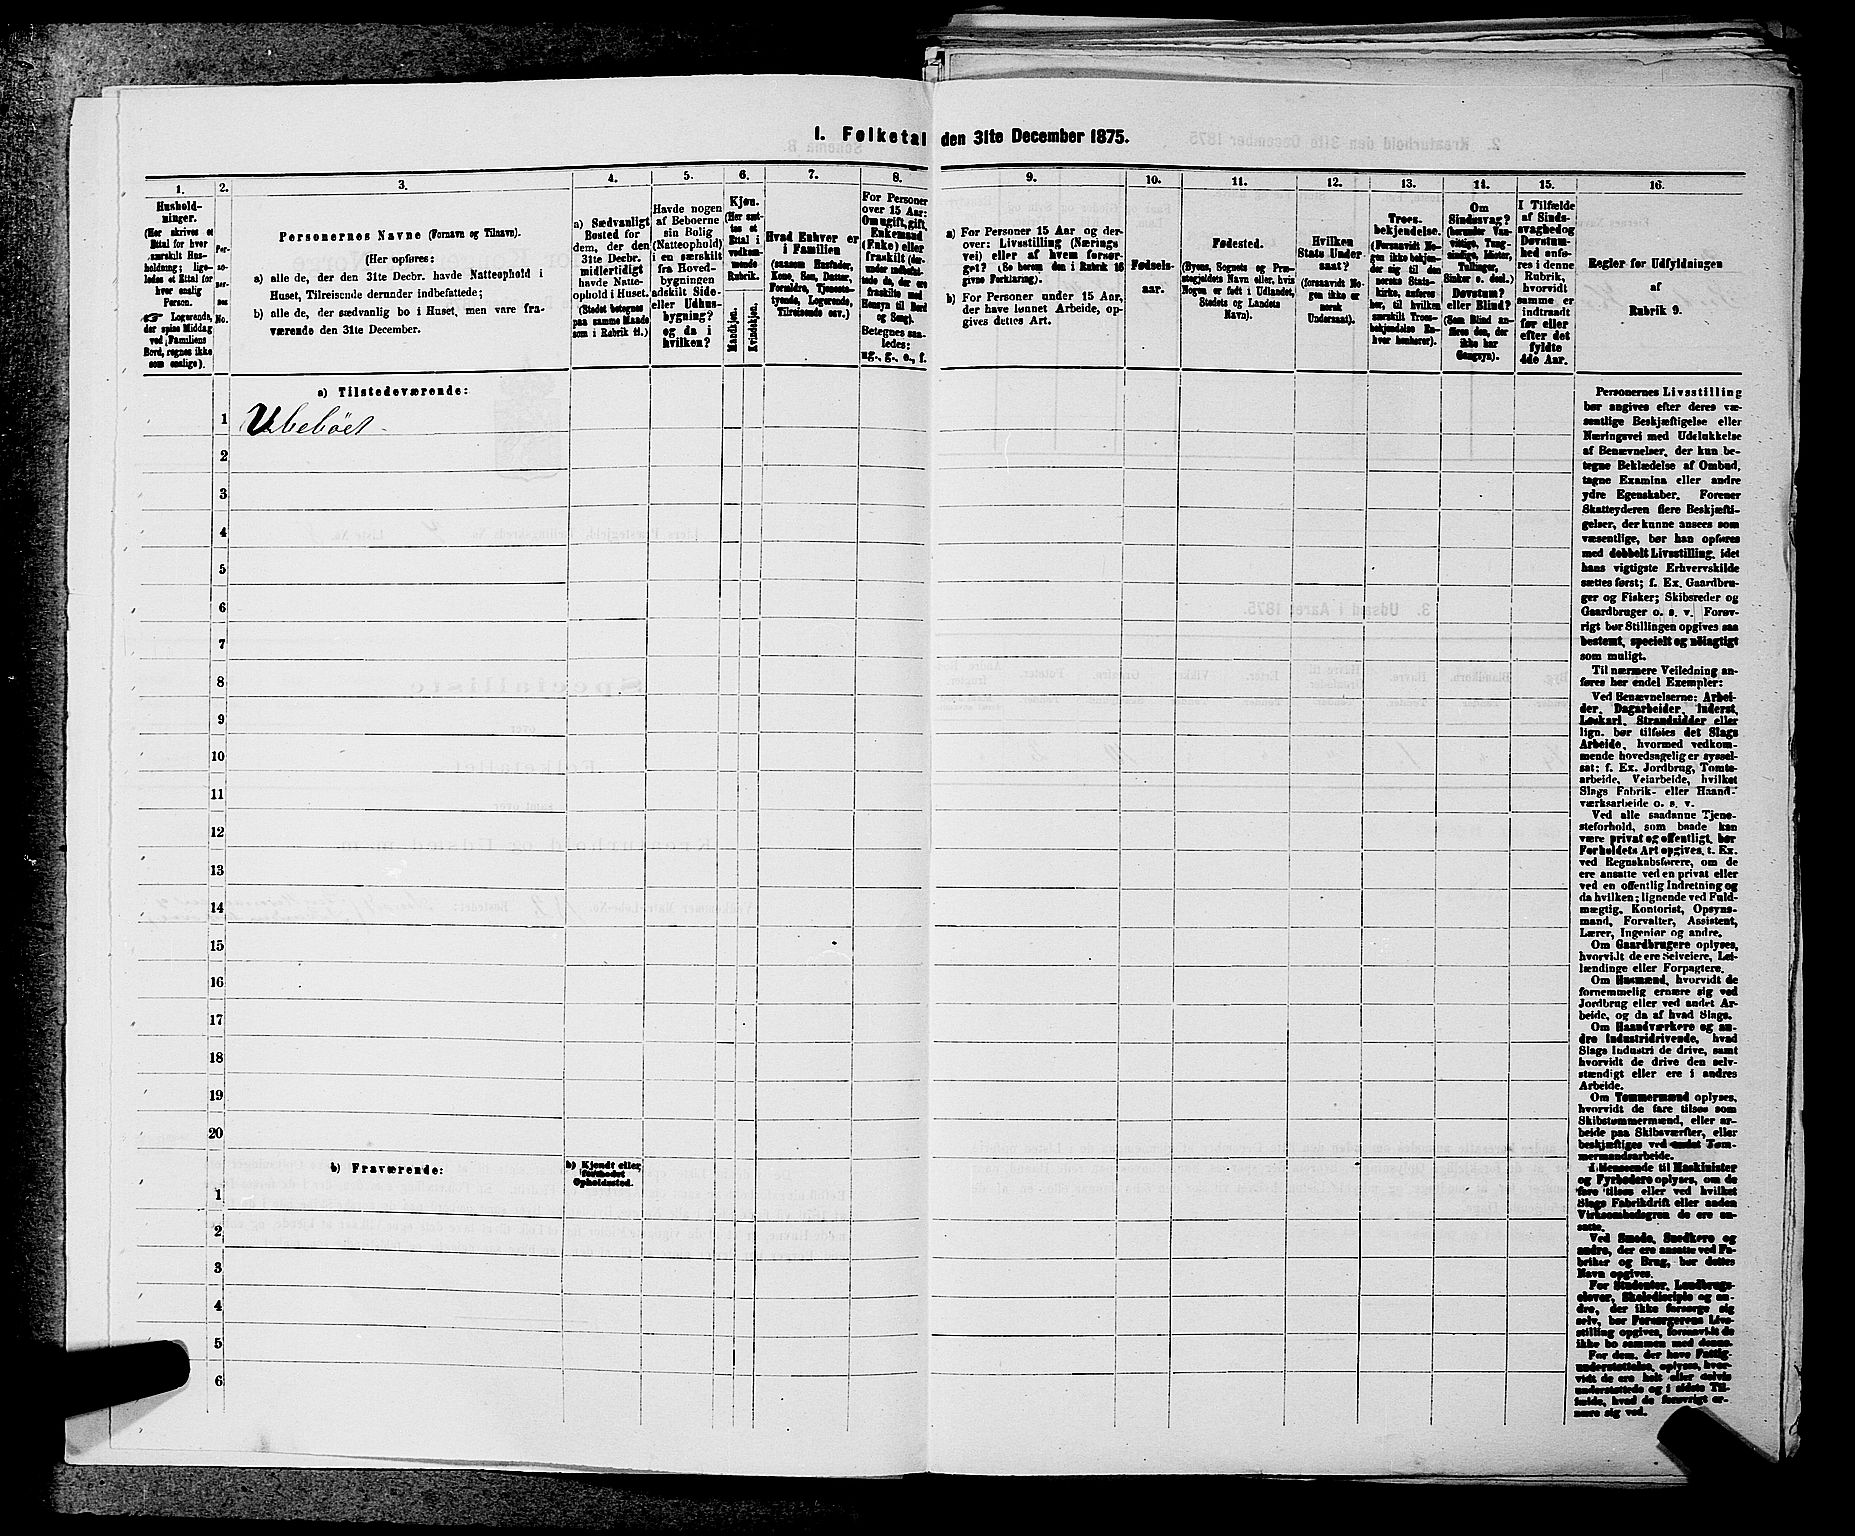 I. Folketal den 31te December 1875.
1.
Hushold-
ninger.
(Her skrives et
Ettal for hver
særskilt Hus-
holdning; lige-
ledes et Ettal for
hver enslig
Person.
Logerende,
der spise Middag
ved Familiens
Bord, regnes ikke
som enslige).
2.
Per-
so-
ner-
nes
No.
3.
Personernes Navne (Fornavn og Tilnavn).
(Her opføres:
a) alle de, der den 31te Decbr. havde Natteophold i
Huset, Tilreisende derunder indbefattede;
b) alle de, der sædvanlig bo i Huset, men vare fra-
værende den 31te December.
4.
a) Sædvanligt
Bosted for
dem, der den
31te Decbr.
midlertidigt
havde Natte-
ophold i Huset.
(Stedet betegnes
paa samme Maade
som i Rubrik 11.)
5.
Havde nogen
af Beboerne
sin Bolig
(Natteophold)
i en særskilt
fra Hoved-
bygningen
adskilt Side-
eller Udhus-
bygning?
og da i
hvilken?
6.
Kjøn.
(Her sæt-
tes et
Ettal i
vedkom-
mende
Rubrik.
Mandkjøn.
Kvindekjøn.
7.
Hvad Enhver er
i Familien
(saasom Husfader,
Kone, Søn, Datter,
Forældre, Tjeneste-
tyende, Logerende,
Tilreisende osv.)
8.
For Personer
over 15 Aar:
Om ugift, gift,
Enkemand
(Enke) eller
fraskilt (der-
under indbefat-
tede de, der ere
fraskilte med
Hensyn til Bord
og Seng).
Betegnes saa-
ledes:
ug., g., e., f.
9.
a) For Personer 15 Aar og der-
over: Livsstilling (Nærings
vei) eller af hvem forsør-
get? (Se herom den i Rubrik 16
givne Forklaring).
b) For Personer under 15 Aar,
der have lønnet Arbeide, op-
gives dettes Art.
10.
Fødsels-
aar.
11.
Fødested.
(Byens, Sognets og Præ-
stegjeldets Navn eller, hvis
Nogen er født i Udlandet,
Stedets og Landets
Navn).
12.
Hvilken
Stats Under-
saat?
(forsaavidt No-
gen ikke er
norsk
Undersaat).
13.
Troes-
bekjendelse.
(Forsaavidt No-
gen ikke bekjen-
der sig til den
norske Stats-
kirke, anføres
her, til hvilken
særskilt Troes-
bekjendelse En-
hver henhører).
14.
Om
Sindssvag?
(herunder Van-
vittige, Tung-
sindige, Idioter,
Tullinger,
Sinker o. desl.)
Døvstum?
eller Blind?
(Som Blind an-
føres den, der
ikke har
Gangsyn).
15.
I Tilfælde
af Sinds-
svaghed og
Døvstum-
hed anfø-
res i denne
Rubrik,
hvorvidt
samme er
indtraadt
før eller
efter det
fyldte
4de Aar.
16.
Regler for Udfyldningen
af
Rubrik 9.
a) Tilstedeværende:
1 Ubeboet
2
3
4
5
6
7
8
9
10
11
12
13
14
15
16
17
18
19
20
b) Fraværende:
b) Kjendt eller
formodet
Opholdssted.
1
2
3
4
5
6
Personernes Livsstilling
bør angives efter deres væ-
sentlige Beskjæftigelse eller
Næringsvei med Udelukkelse
af Benævnelser, der kun be-
tegne Beklædelse af Ombud,
tagne Examina eller andre
ydre Egenskaber. Forener
Skatteyderen flere Beskjæfti-
gelser, der kunne ansees som
væsentlige, bør han opføres
med dobbelt Livsstilling, idet
hans vigtigste Erhvervskilde
sættes først; f. Ex. Gaardbru-
ger og Fisker; Skibsreder og
Gaardbruger o. s. v. Forøv-
rigt bør Stillingen opgives saa
bestemt, specielt og nøiagtigt
som muligt.
Til nærmere Veiledning an-
føres her endel Exempler:
Ved Benævnelserne: Arbei-
der, Dagarbeider, Inderst,
Løskarl, Strandsidder eller
lign. bør tilføies det Slags
Arbeide, hvormed vedkom-
mende hovedsagelig er syssel-
sat; f. Ex. Jordbrug, Tomte-
arbeide, Veiarbeide, hvilket
Slags Fabrik- eller Haand-
værksarbeide o. s. v.
Ved alle saadanne Tjene-
steforhold, som baade kan
være privat og offentligt, bør
Forholdets Art opgives, t. Ex.
ved Regnskabsførere, om de
ere ansatte ved en privat eller
ved en offentlig Indretning og
da hvilken; lignende ved Fuld-
mægtig, Kontorist, Opsyns-
mand, Forvalter, Assistent,
Lærer, Ingeniør og andre.
Om Gaardbrugere oplyses,
hvorvidt de ere Selveiere, Lei-
lændinge eller Forpagtere.
Om Husmænd, hvorvidt de
fornemmelig ernære sig ved
Jordbrug eller ved andet Ar-
beide, og da af hvad Slags.
Om Haandværkere og an-
dre Industridrivende, hvad
Slags Industri de drive, samt
hvorvidt de drive den selv-
stændigt eller ere i andres
Arbeide.
Om Tømmermænd oplyses,
hvorvidt de fare tilsøs som
Skibstømmermænd, eller ar-
beide paa Skibsværfter, eller
beskjæftiges ved andet Tøm-
mermandsarbeide.
I Henseende til Maskinister
og Fyrbødere oplyses, om de
fare tilsøs eller ved hvilket
Slags Fabrikdrift eller anden
Virksomhedsgren de ere an-
satte.
Ved Smede, Snedkere og
andre, der ere ansatte ved Fa-
briker og Brug, bør dettes
Navn opgives.
For Studenter, Landbrugs-
elever, Skoledisciple og an-
dre, der ikke forsørge sig
selv, bør Forsørgerens Livs-
stilling opgives, forsaavidt de
ikke bo sammen med denne.
For dem, der have Fattig-
understøttelse, oplyses, hvor-
vidt de ere helt eller delvis
understøttede og i sidste Til-
fælde, hvad de forøvrigt er-
nære sig ved.